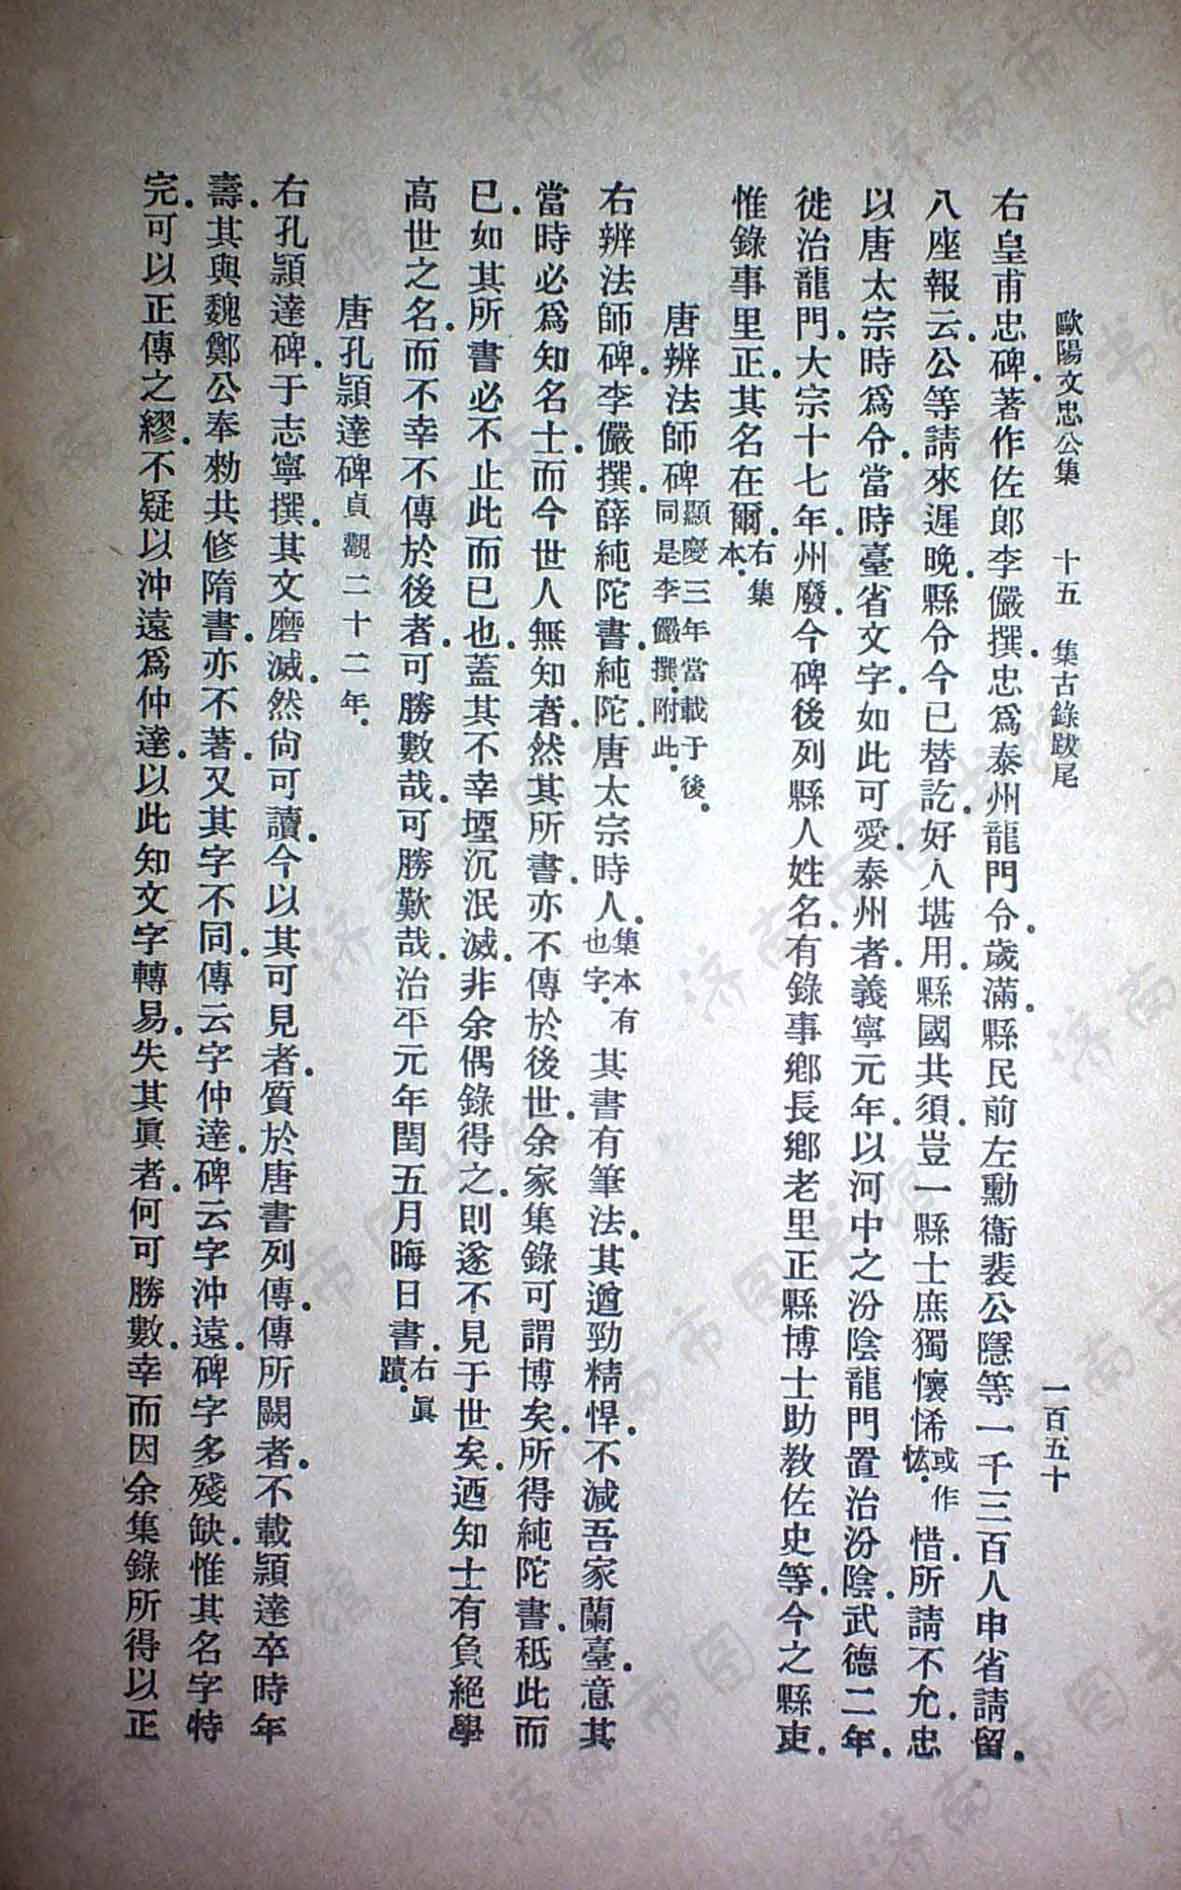 歐陽文忠公集　十五　集古錄跋尾　一百五十
右皇甫忠碑。著作佐郎李儼撰。忠爲泰州龍門令。歲滿。縣民前左勳衞裴公隱等一千三百人申省請留。
八座報云。公等請來遲晚。縣令今已替訖。好人堪用。縣國共須。豈一縣士庶獨懷悕或作㤥。惜。所請不允。忠
以唐太宗時爲令。當時臺省文字。如此可愛。泰州者。義寧元年。以河中之汾陰龍門置治汾陰。武德二年。
徙治龍門。大宗十七年。州廢。今碑後列縣人姓名。有錄事鄉長鄉老里正縣博士助教佐史等。今之縣吏。
惟錄事里正。其名在爾。右集本。
唐辨法師碑顯慶三年當載于後。同是李儼撰。附此。
右辨法師碑。李儼撰。薛純陀書。純陀。唐太宗時人。集本有也字。其書有筆法。其遒勁精悍。不減吾家蘭臺。意其
當時必爲知名士。而今世人無知者。然其所書。亦不傳於後世。余家集錄可謂博矣。所得純陀書。秖此而
已。如其所書必不止此而已也。蓋其不幸堙沉泯滅。非余偶錄得之。則遂不見于世矣。迺知士有負絕學
高世之名。而不幸不傳於後者。可勝數哉。可勝歎哉。治平元年閏五月晦日書。右眞蹟。
唐孔穎達碑貞觀二十二年。
右孔穎達碑。于志寧撰。其文磨滅。然尙可讀。今以其可見者。質於唐書列傳。傳所闕者。不載穎達卒時年
壽。其與魏鄭公奉勅共修隋書。亦不著。又其字不同。傳云字仲達。碑云字沖遠。碑字多殘缺。惟其名字特
完。可以正傳之繆。不疑以沖遠爲仲達。以此知文字轉易。失其眞者。何可勝數。幸而因余集錄所得以正